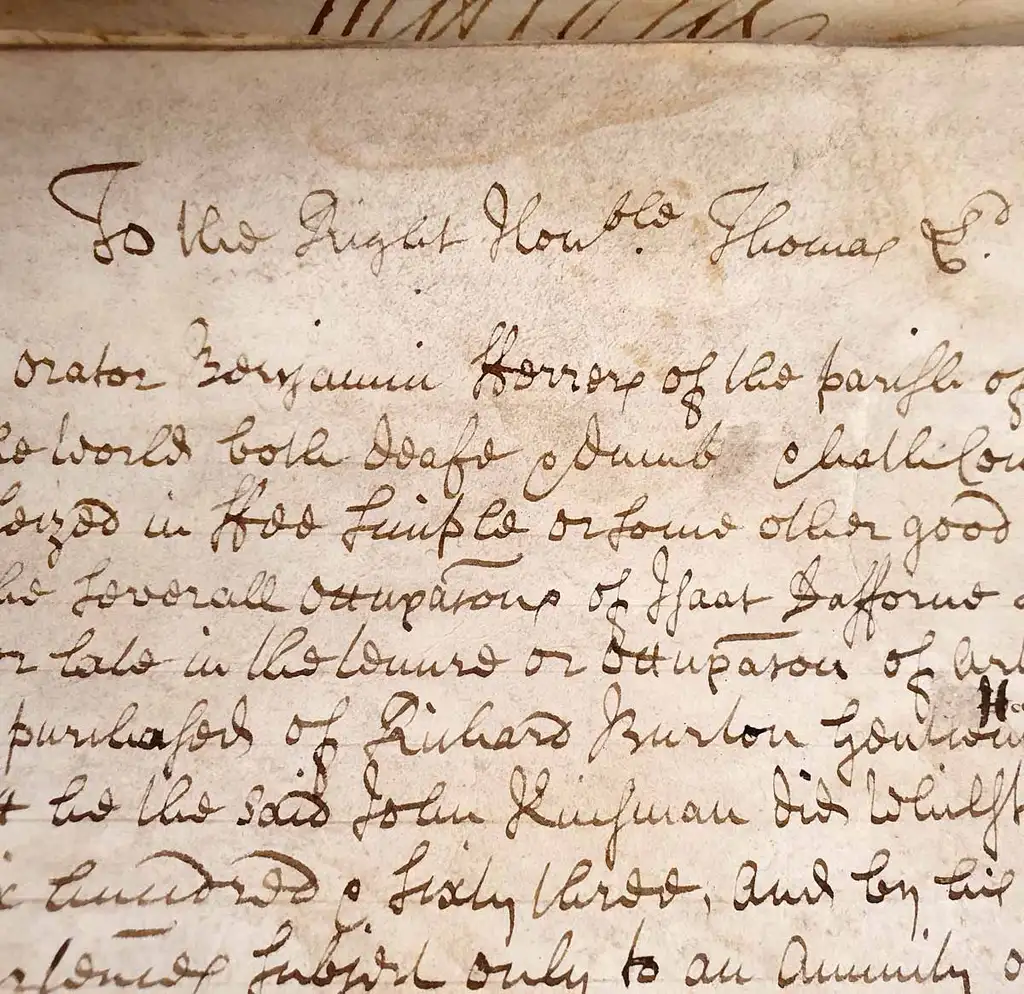 To the Right Honble. Thomas Ld.
orator Benjamin fferrers of the parish of
he World both deafe & dumb & hath
seized in ffee simple or some other good
he severall Occupacons of Isaac Dafforne
or late in the tenure or Occupacon of
purchased of Richard Burton Gentlem
he the said John Kinsman did Whilst
hundred & sixty three, And by his
subject only to an Annuity